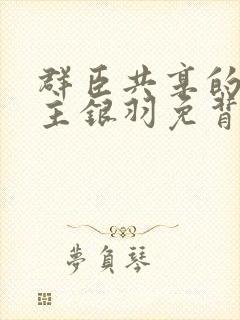 群臣共享的
主银羽免背
夢負琴